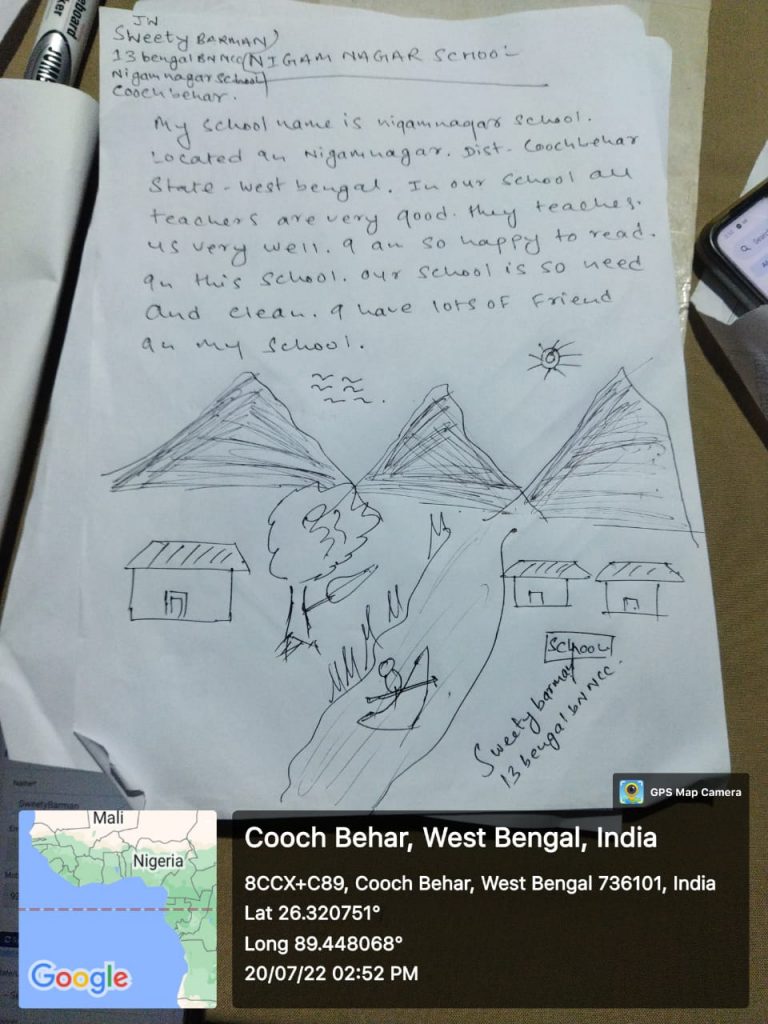 JW
Sweety BARMAN
13 bengal BN NCC
Nigamnagar School
Coochbehar.
NIGAM NAGAR SCHOOL
My School name is nigamnagar School.
Located an Nigamnagar. Dist- Coochbehar
State - West bengal. In our School all
teachers are very good. they teaches.
us very well. I am so happy to read.
an this School. our School is so need
and clean. I have lots of Friend
an my School.
SCHOOL
Sweety barman
13 bengal bN NCC.
GPS Map Camera
Cooch Behar, West Bengal, India
8CCX+C89, Cooch Behar, West Bengal 736101, India
Lat 26.320751°
Long 89.448068°
20/07/22 02:52 PM
Mali
Nigeria
Google
Name*
SweetyBarman